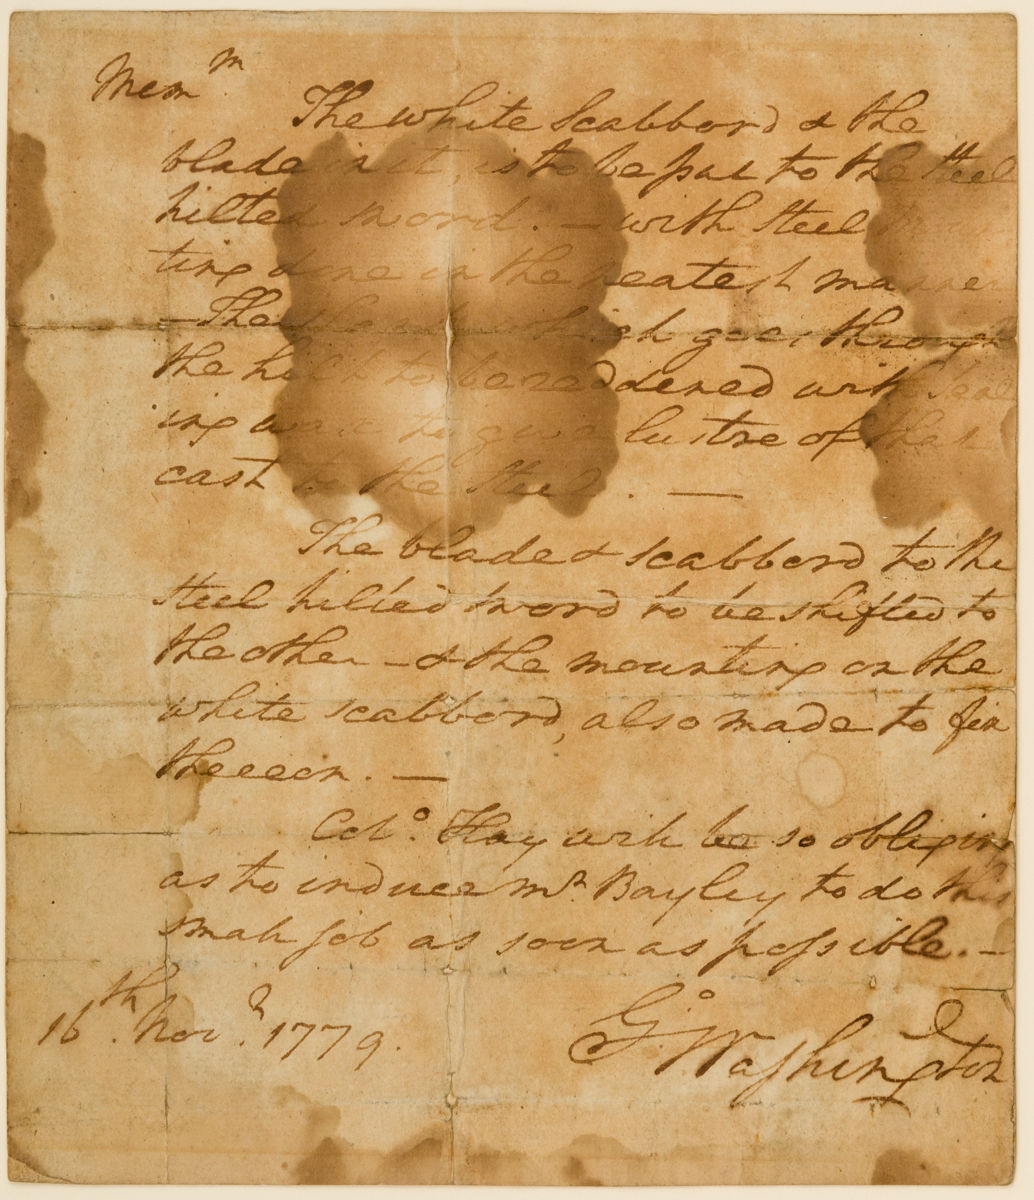 Mem.m
The white Scabbord & the
blade in it, is to be put to the steel
hilted sword. — with steel moun
ting done in the neatest manner
— The which goes through
the to be reddened with Seal
ing wax to give lustre of that
cast to the steel. —
The blade & scabbord to the
steel hilted sword to be shifted to
the other — & the mounting on the
white scabbord, also made to fix
thereon. —
Colo. Hay will be so obliging
as to induce Mr. Bayley to do this
small job as soon as possible. —
Go. Washington
16th. Novr. 1779.